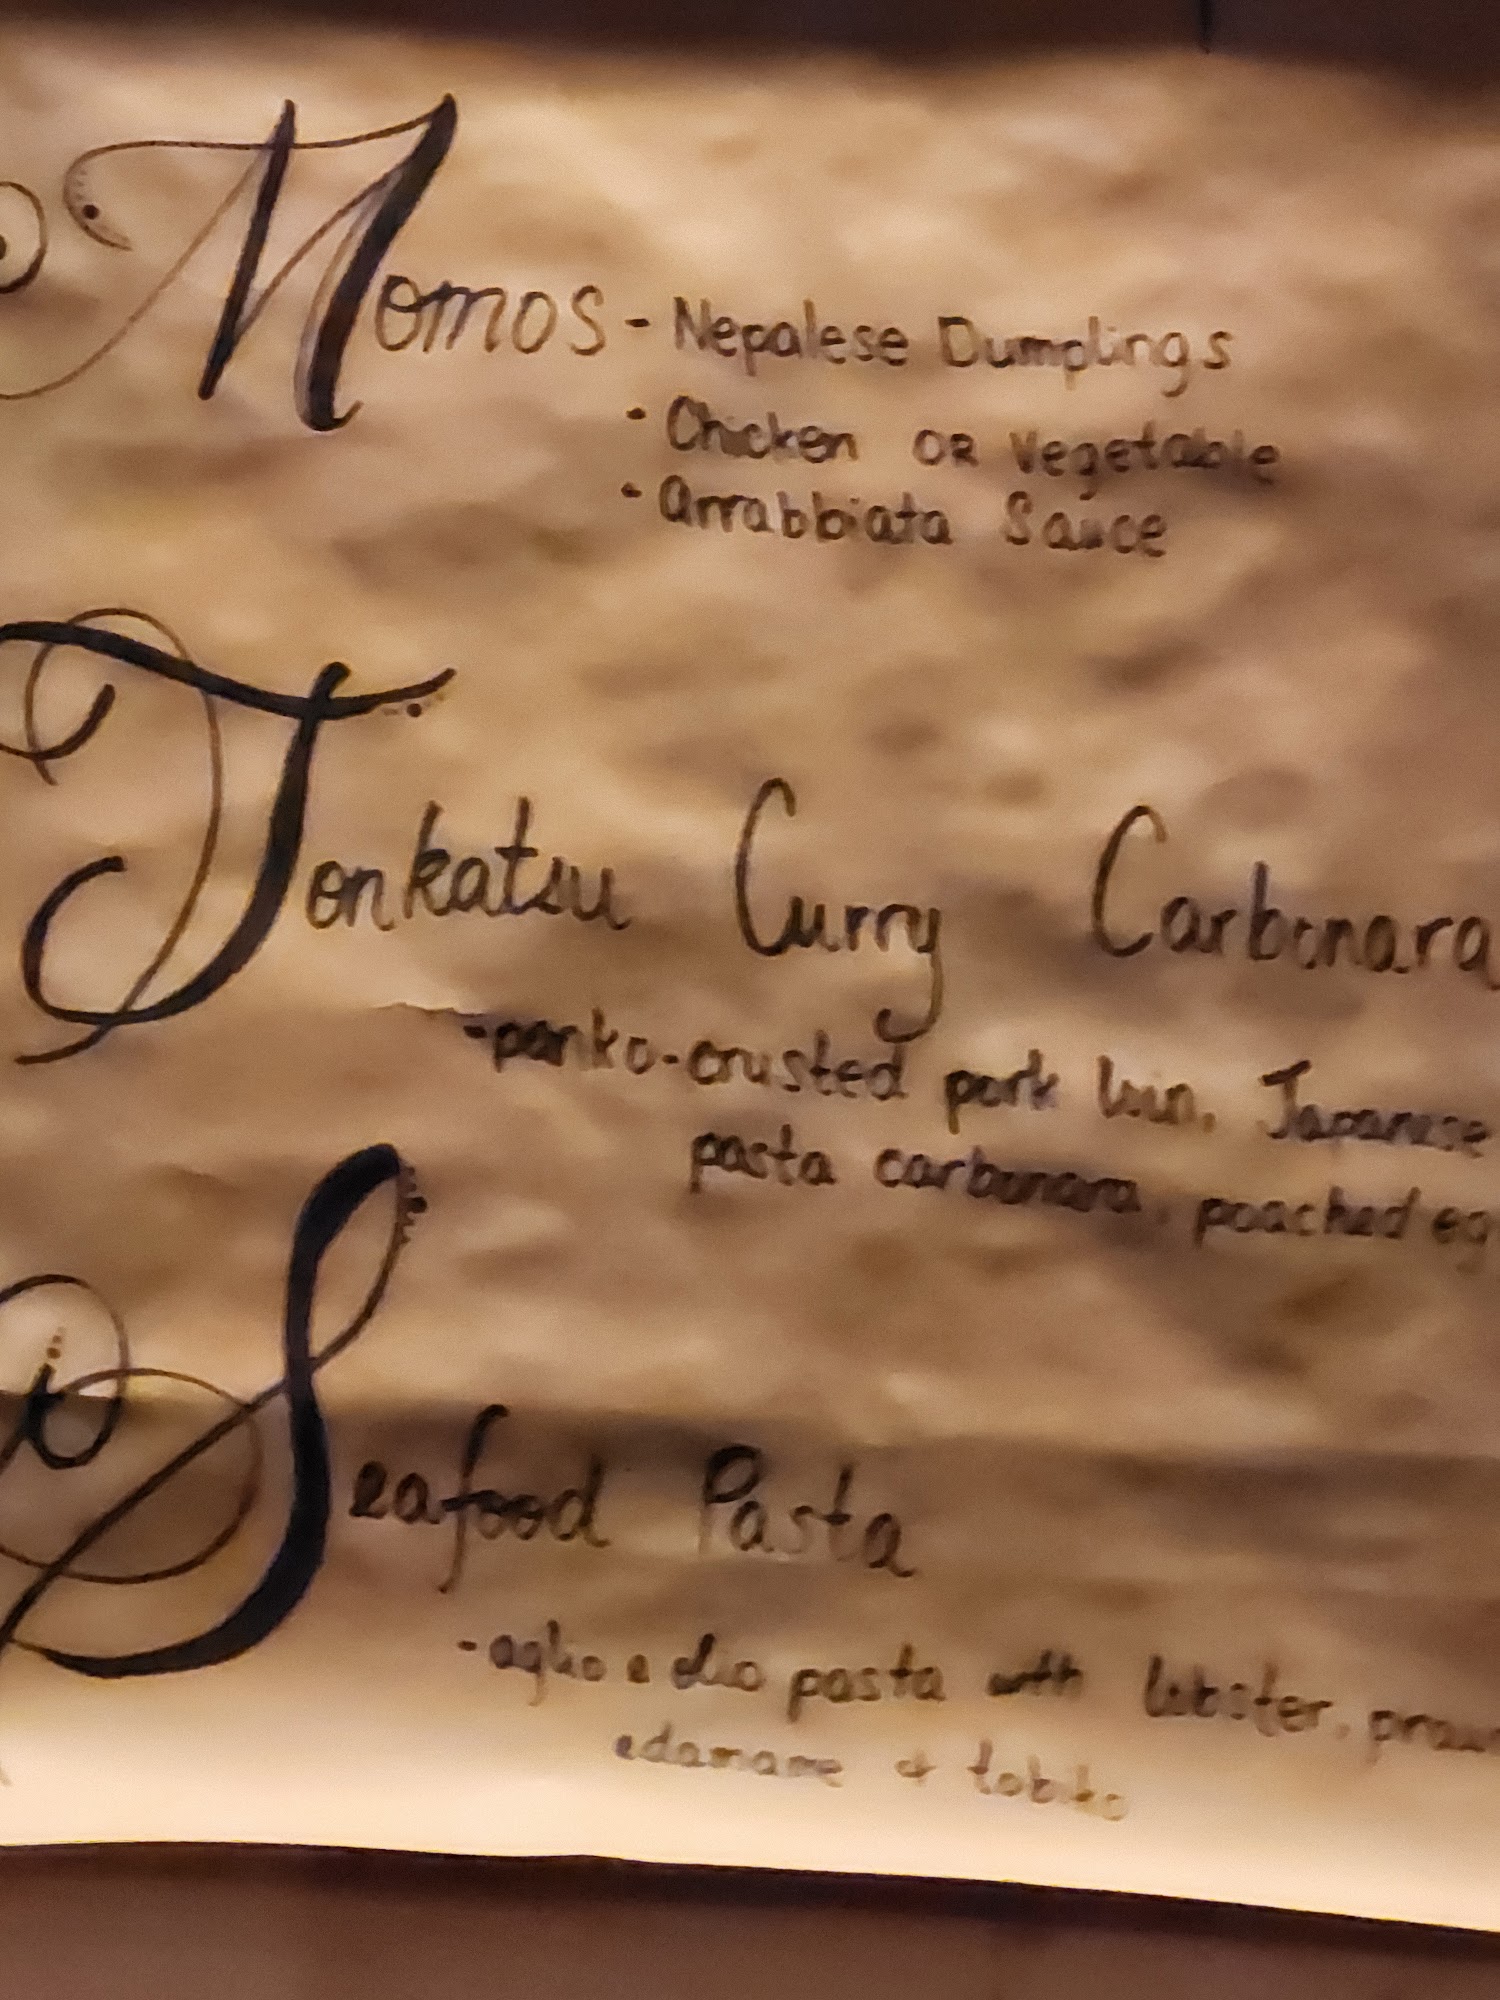 Momos - Nepalese Dumplings
• Chicken OR Vegetable
• Arrabbiata Sauce
Tonkatsu Curry Carbonara
-panko-crusted pork loin, Japanese
pasta carbonara, poached eg
Seafood Pasta
-aglio e olio pasta with lobster, praw
edamame & tobiko